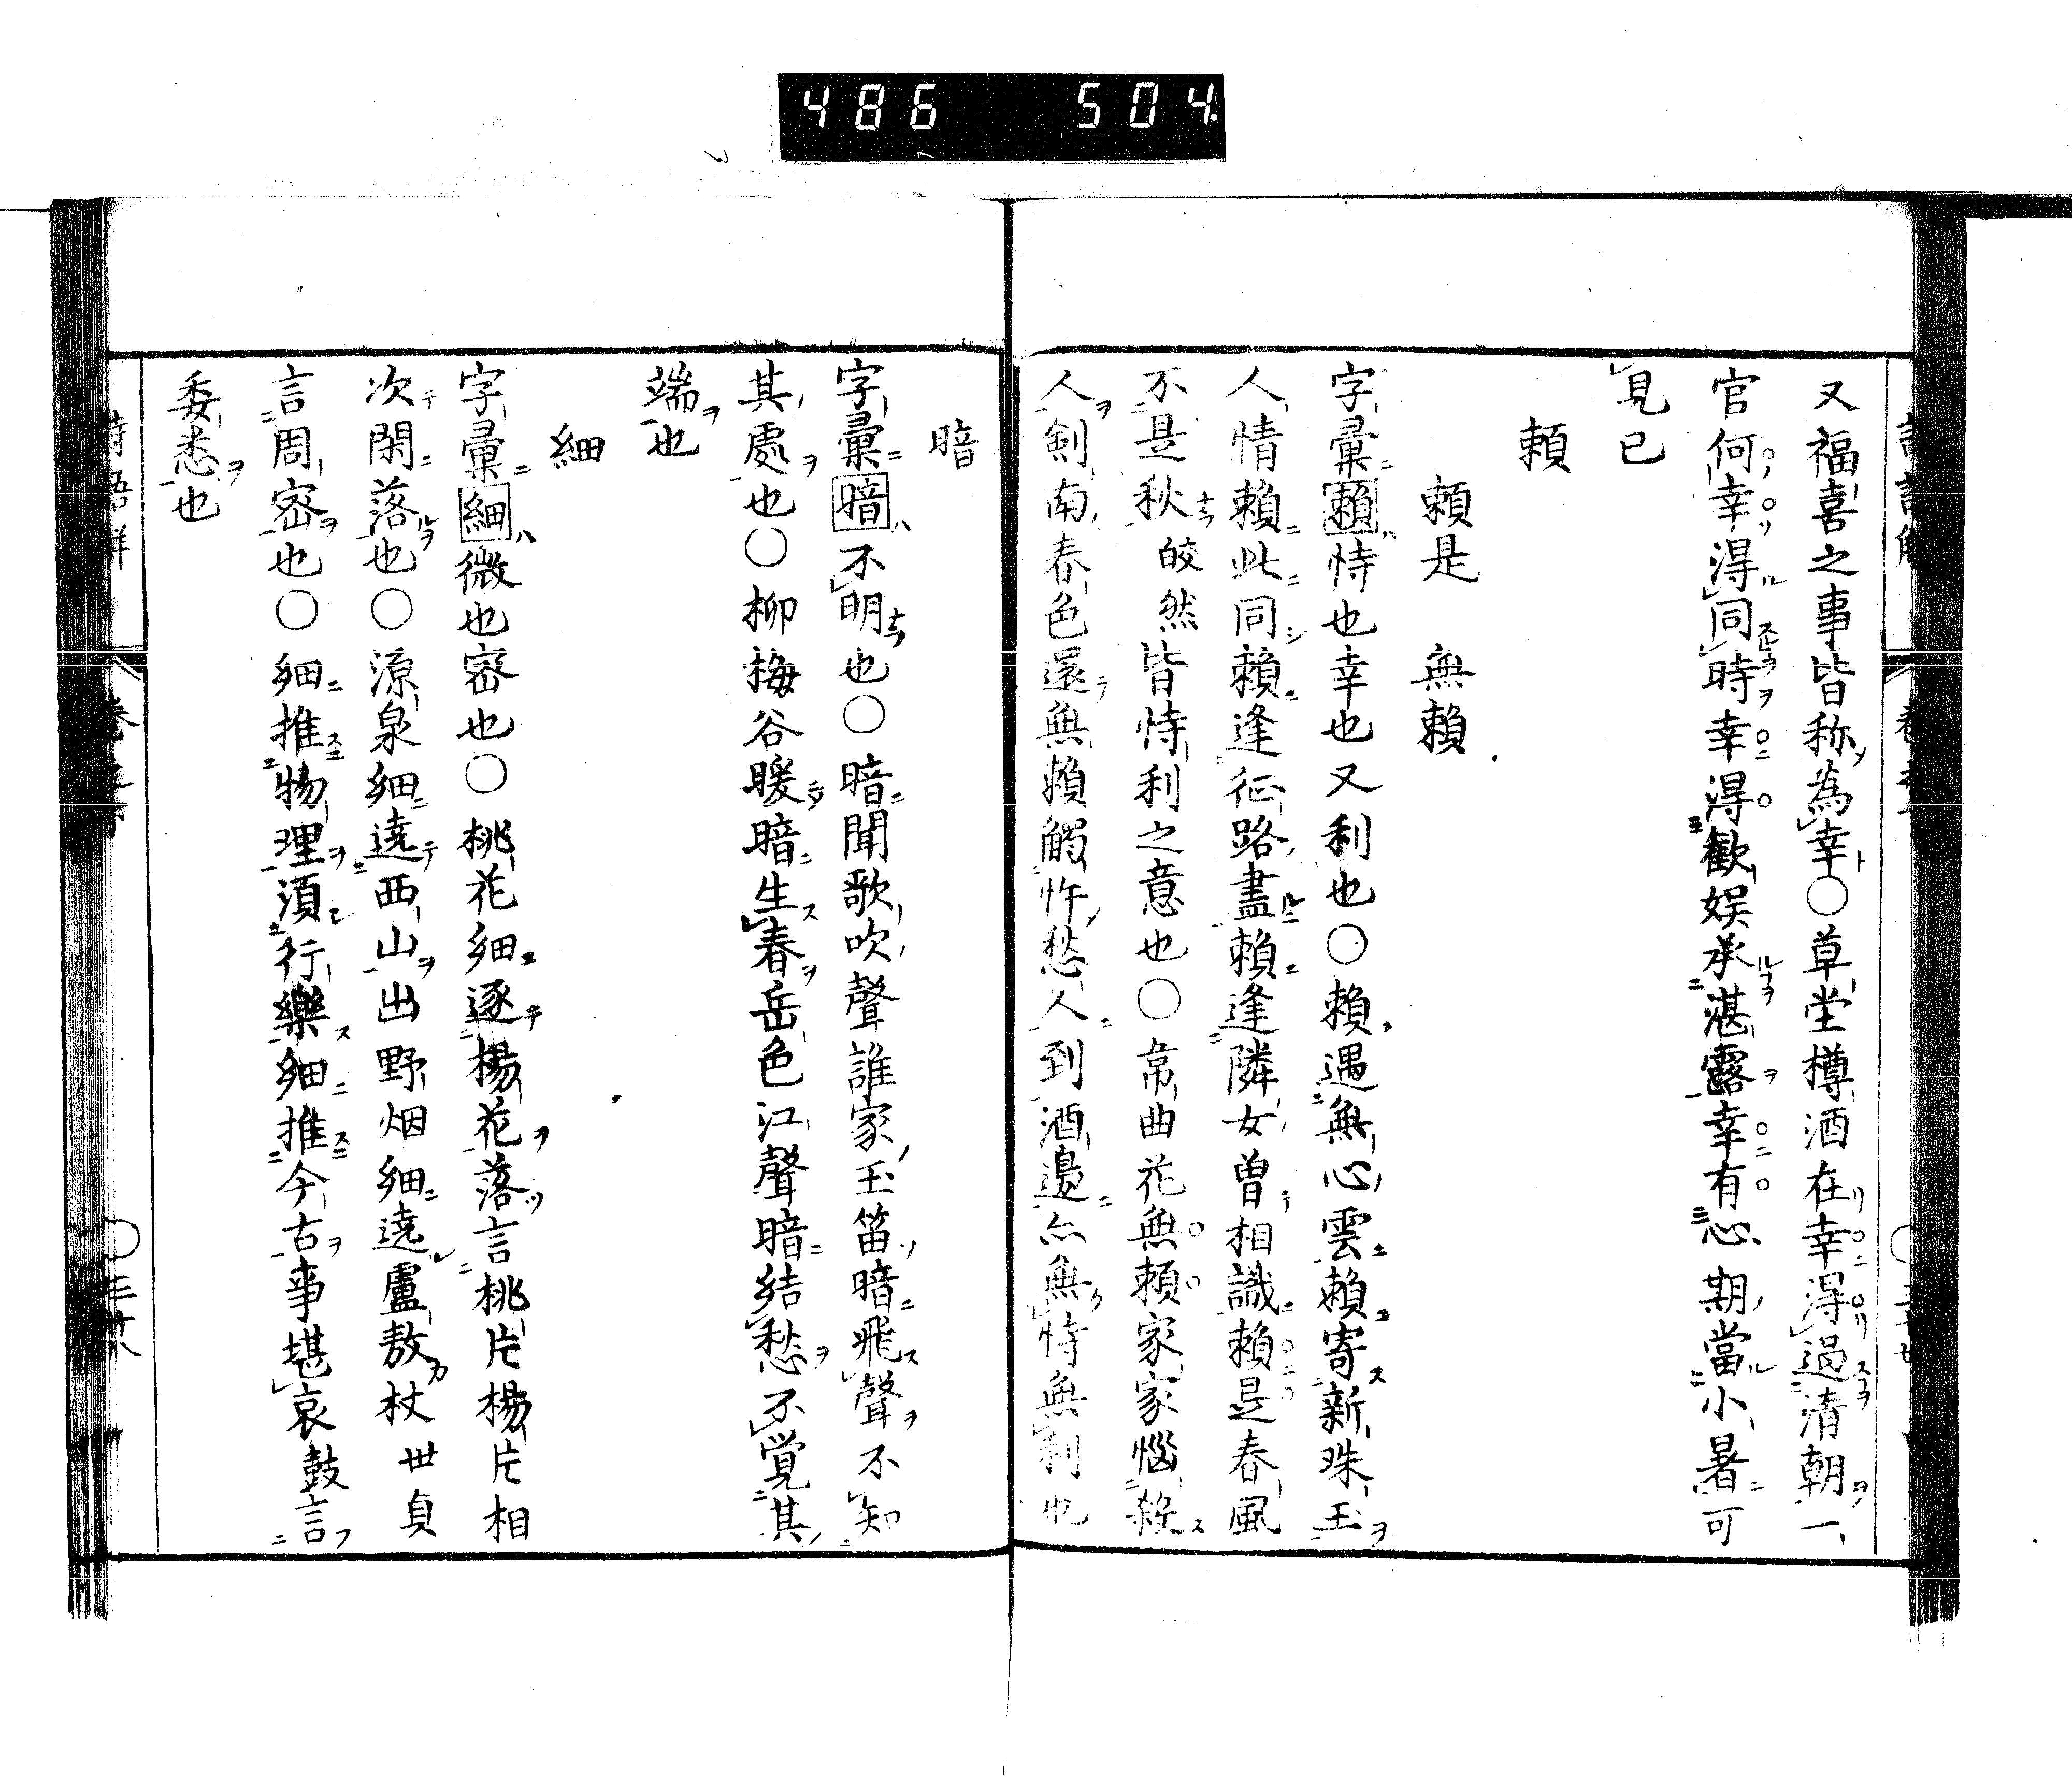 486 504
又福喜之事皆称為幸〇草堂樽酒在幸得過清朝一
官何幸得同時幸得歡娯承湛露幸有心期當小暑可
見已
賴
賴是 無賴
字彙賴恃也幸也又利也〇賴遇無心雲賴寄新珠玉
人情賴此同賴逢征路盡賴逢隣女曽相識賴是春風
不是秋皎然皆恃利之意也〇韋曲花無賴家家惱殺
人剣南春色還無賴觸忤愁人到酒邊亦無恃無利也
暗
字彙暗不明也〇暗聞歌吹聲誰家玉笛暗飛聲不知
其處也〇柳梅谷暖暗生春岳色江聲暗結愁不覚其
端也
細
字彙細微也宻也〇桃花細逐楊花落言桃片楊片相
次閑落也〇源泉細遶西山出野烟細遶盧敖杖世貞
言周宻也〇細推物理湏行樂細推今古事堪哀鼓言
委悉也